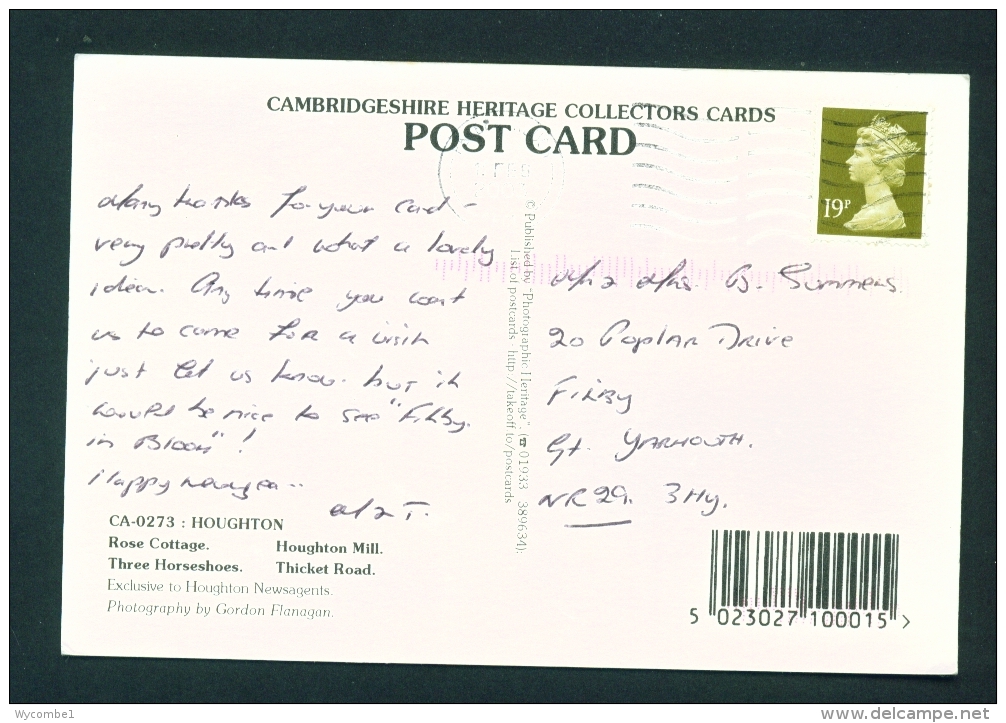 CAMBRIDGESHIRE HERITAGE COLLECTORS CARDS
POST CARD
19P
Many thanks for your card -
very pretty and what a lovely
idea. Any time you want
us to come for a visit
just let us know. but it
would be nice to see "Filby.
in Bloom"!
Happy new year..
M & T.
© Published by "Photographic Heritage", (☎ 01933 389634):
List of postcards - http://takeoff.to/postcards
Mr & Mrs. B. Summers.
20 Poplar Drive
Filby
Gt. Yarmouth.
NR29. 3Hy.
CA-0273 : HOUGHTON
Rose Cottage. Houghton Mill.
Three Horseshoes. Thicket Road.
Exclusive to Houghton Newsagents.
Photography by Gordon Flanagan.
5 023027 100015 >
Wycombe1
www.delcampe.net